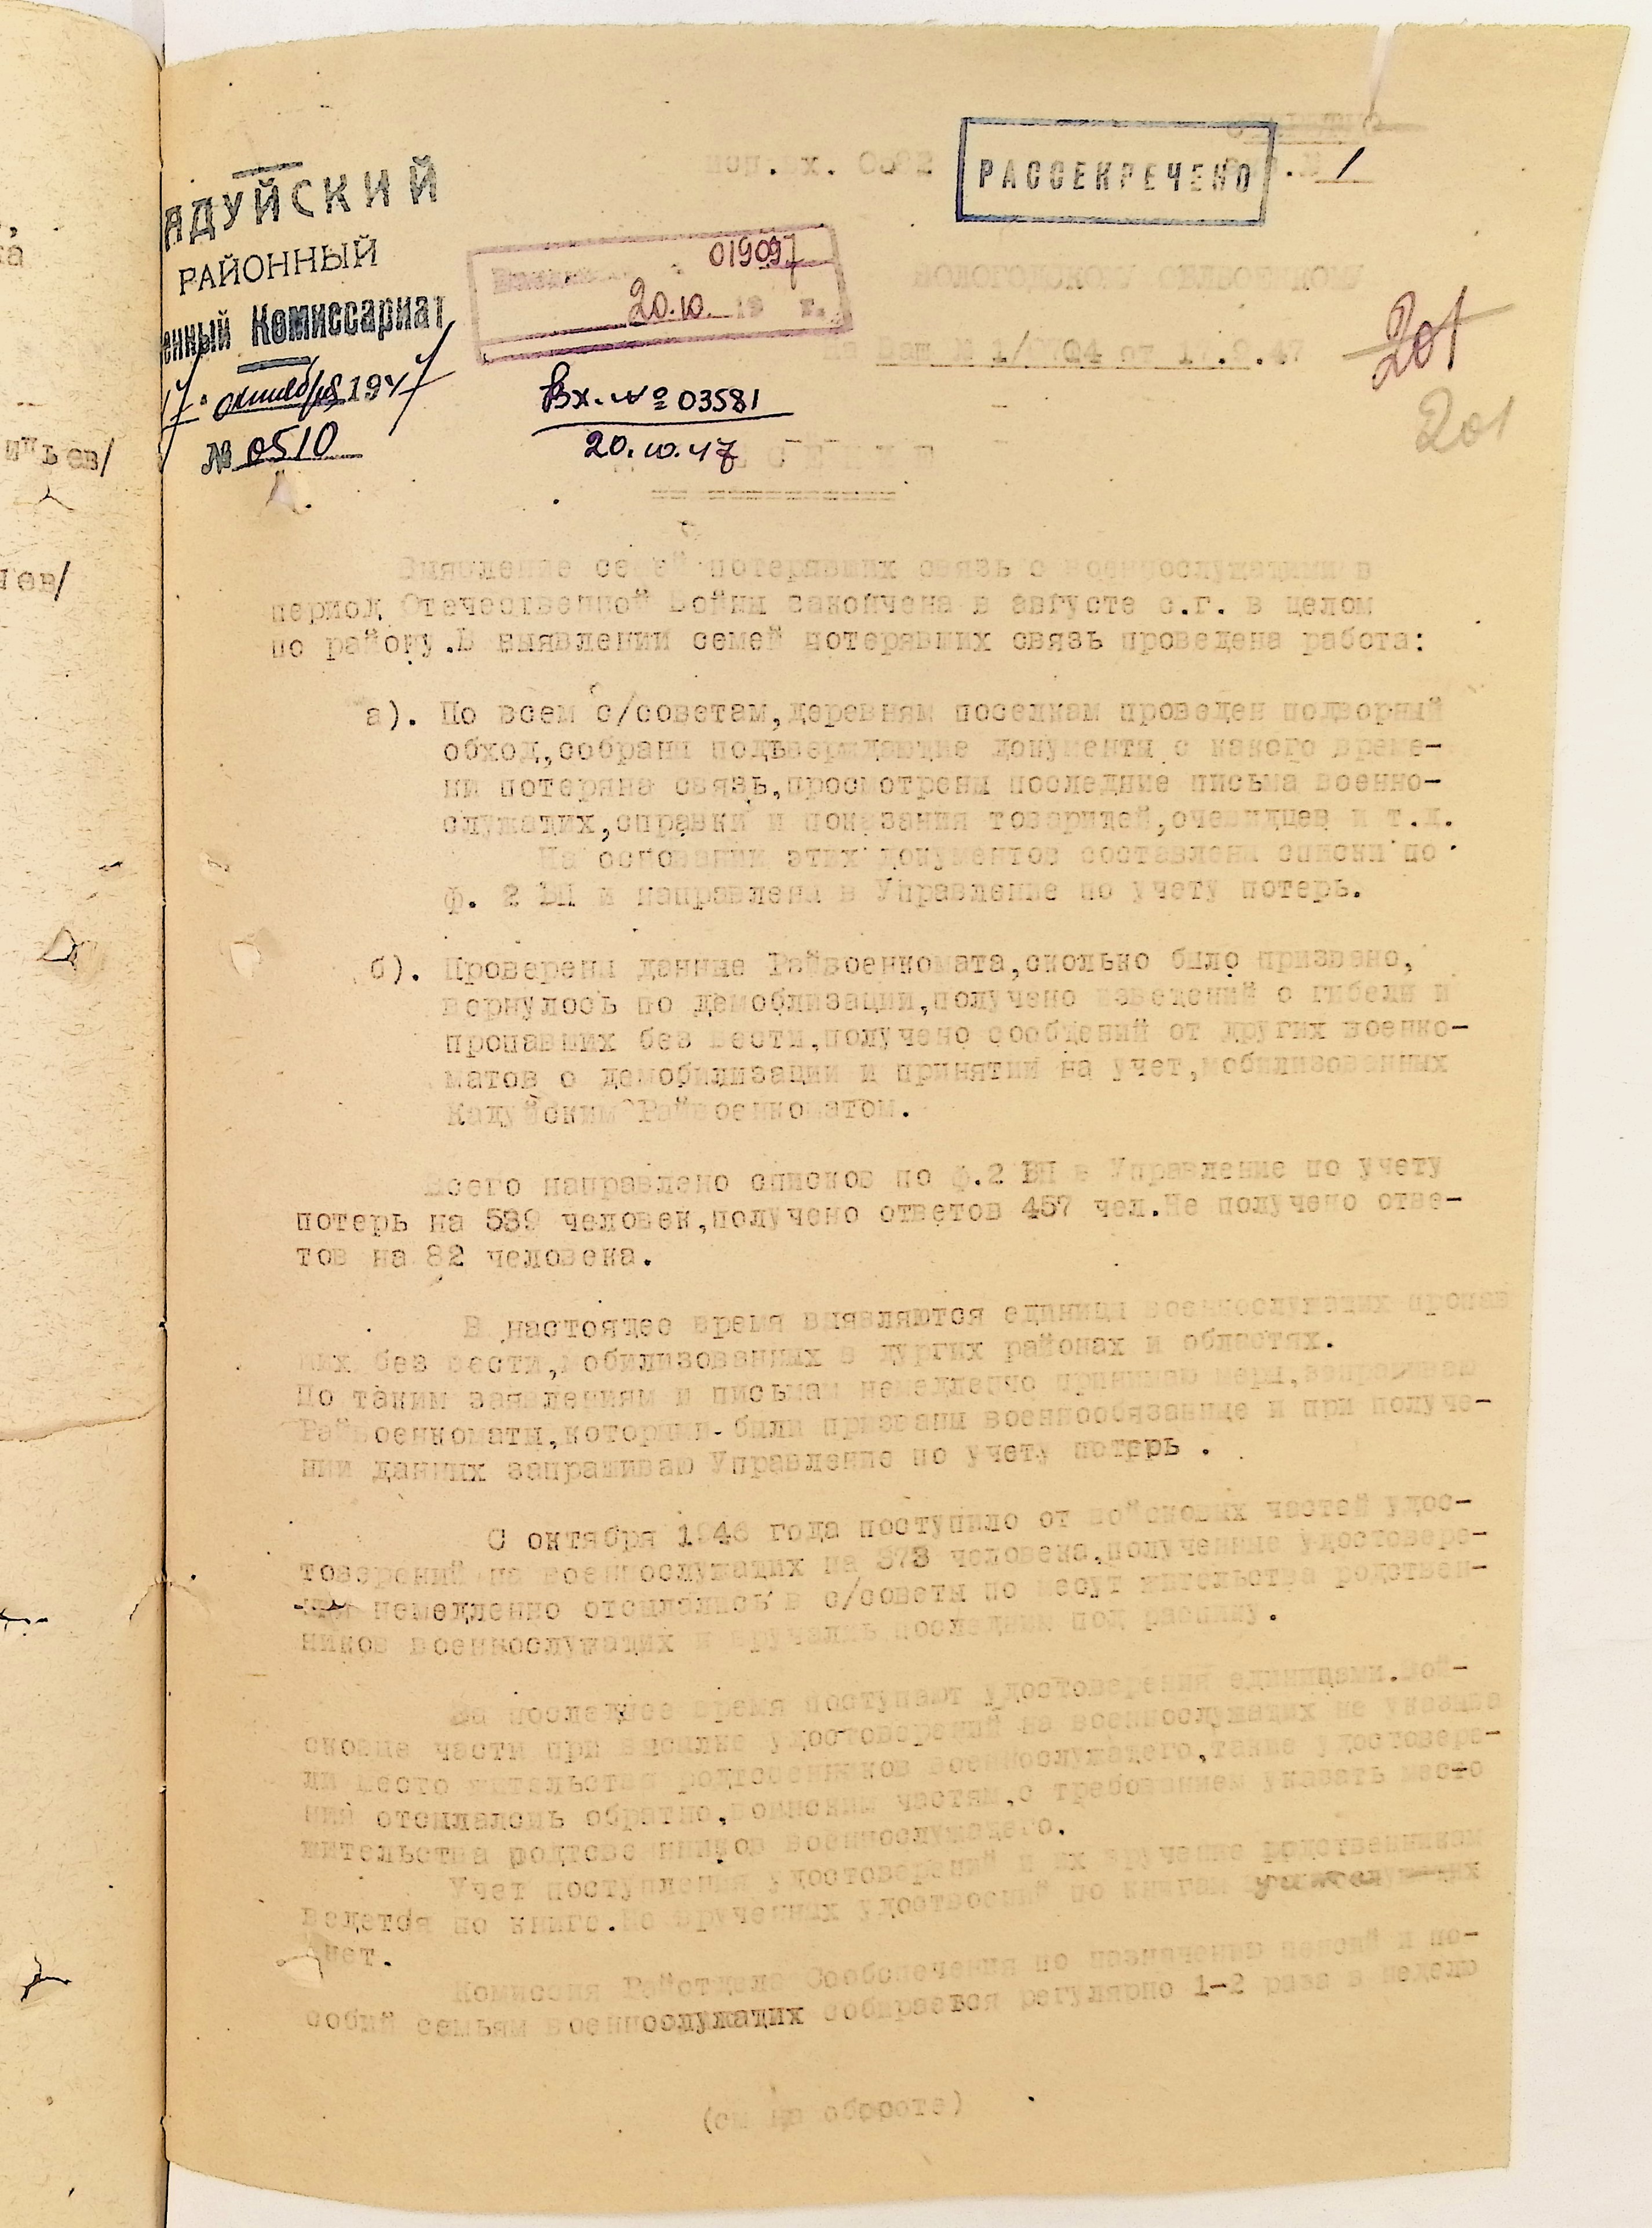 АДУЙСКИЙ
РАЙОННЫЙ
енный Комиссариат
17 октября 1947
№ 0510
вх.
РАССЕКРЕЧЕНО
1
019097
20.10. 19 г.
ВОЛОГОДСКОМУ ОБЛВОЕНКОМУ
На Ваш № 1/ от .9.47
201
201
Вх. № 03581
20.10.47
Выявление семей потерявших связь с военнослужащими в
период Отечественной Войны закончена в августе с.г. в целом
по району.В выявлении семей потерявших связь проведена работа:
а). По всем с/советам,деревням поселкам проведен подворный
обход,собраны подтверждающие документы с какого време-
ни потеряна связь,просмотрены последние письма военно-
служащих,справки и показания товарищей,очевидцев и т.д.
На основании этих документов составлены списки по
ф. 2 БП и направлены в Управление по учету потерь.
б). Проверены данные Райвоенкомата,сколько было призвано,
вернулось по демоблизации,получено изведений о гибели и
пропавших без вести,получено сообщений от других военко-
матов о демобилизации и принятии на учет,мобилизованных
Кадуйским Райвоенкоматом.
Всего направлено списков по ф.2 БП в Управление по учету
потерь на 539 человек,получено ответов 457 чел.Не получено отве-
тов на 82 человека.
В настоящее время выявляются единицы военнослужащих пропав
ших без вести,мобилизованных в дургих районах и областях.
По таким заявлениям и письмам немедленно принимаю меры,запрашиваю
Райвоенкоматы,которыми были призваны военнообязанные и при получе-
нии данных запрашиваю Управление по учету потерь .
С октября 1946 года поступило от войсковых частей удос-
товерений на военнослужащих на 373 человека,полученные удостовере-
немедленно отсылались в с/советы по месут жительства родствен-
ников военнослужащих и вручались последним под расписку.
За последнее время поступают удостоверения единицами.Вой-
сковые части при высылке удостоверений на военнослужащих не указыва
ли место жительства родтсвенников военнослужащего,такие удостовере-
ния отсылались обратно,воинским частям,с требованием указать место
жительства родтсвенников военнослужащего.
Учет поступления удостоверений и их вручение родственникам
ведется по книге.Не врученных удоствоений по книгам
нет.
Комиссия Райотдела Сообспечения по назначению пенсий и по-
собий семьям военнослужащих собирается регулярно 1-2 раза в неделю
(см на обороте)